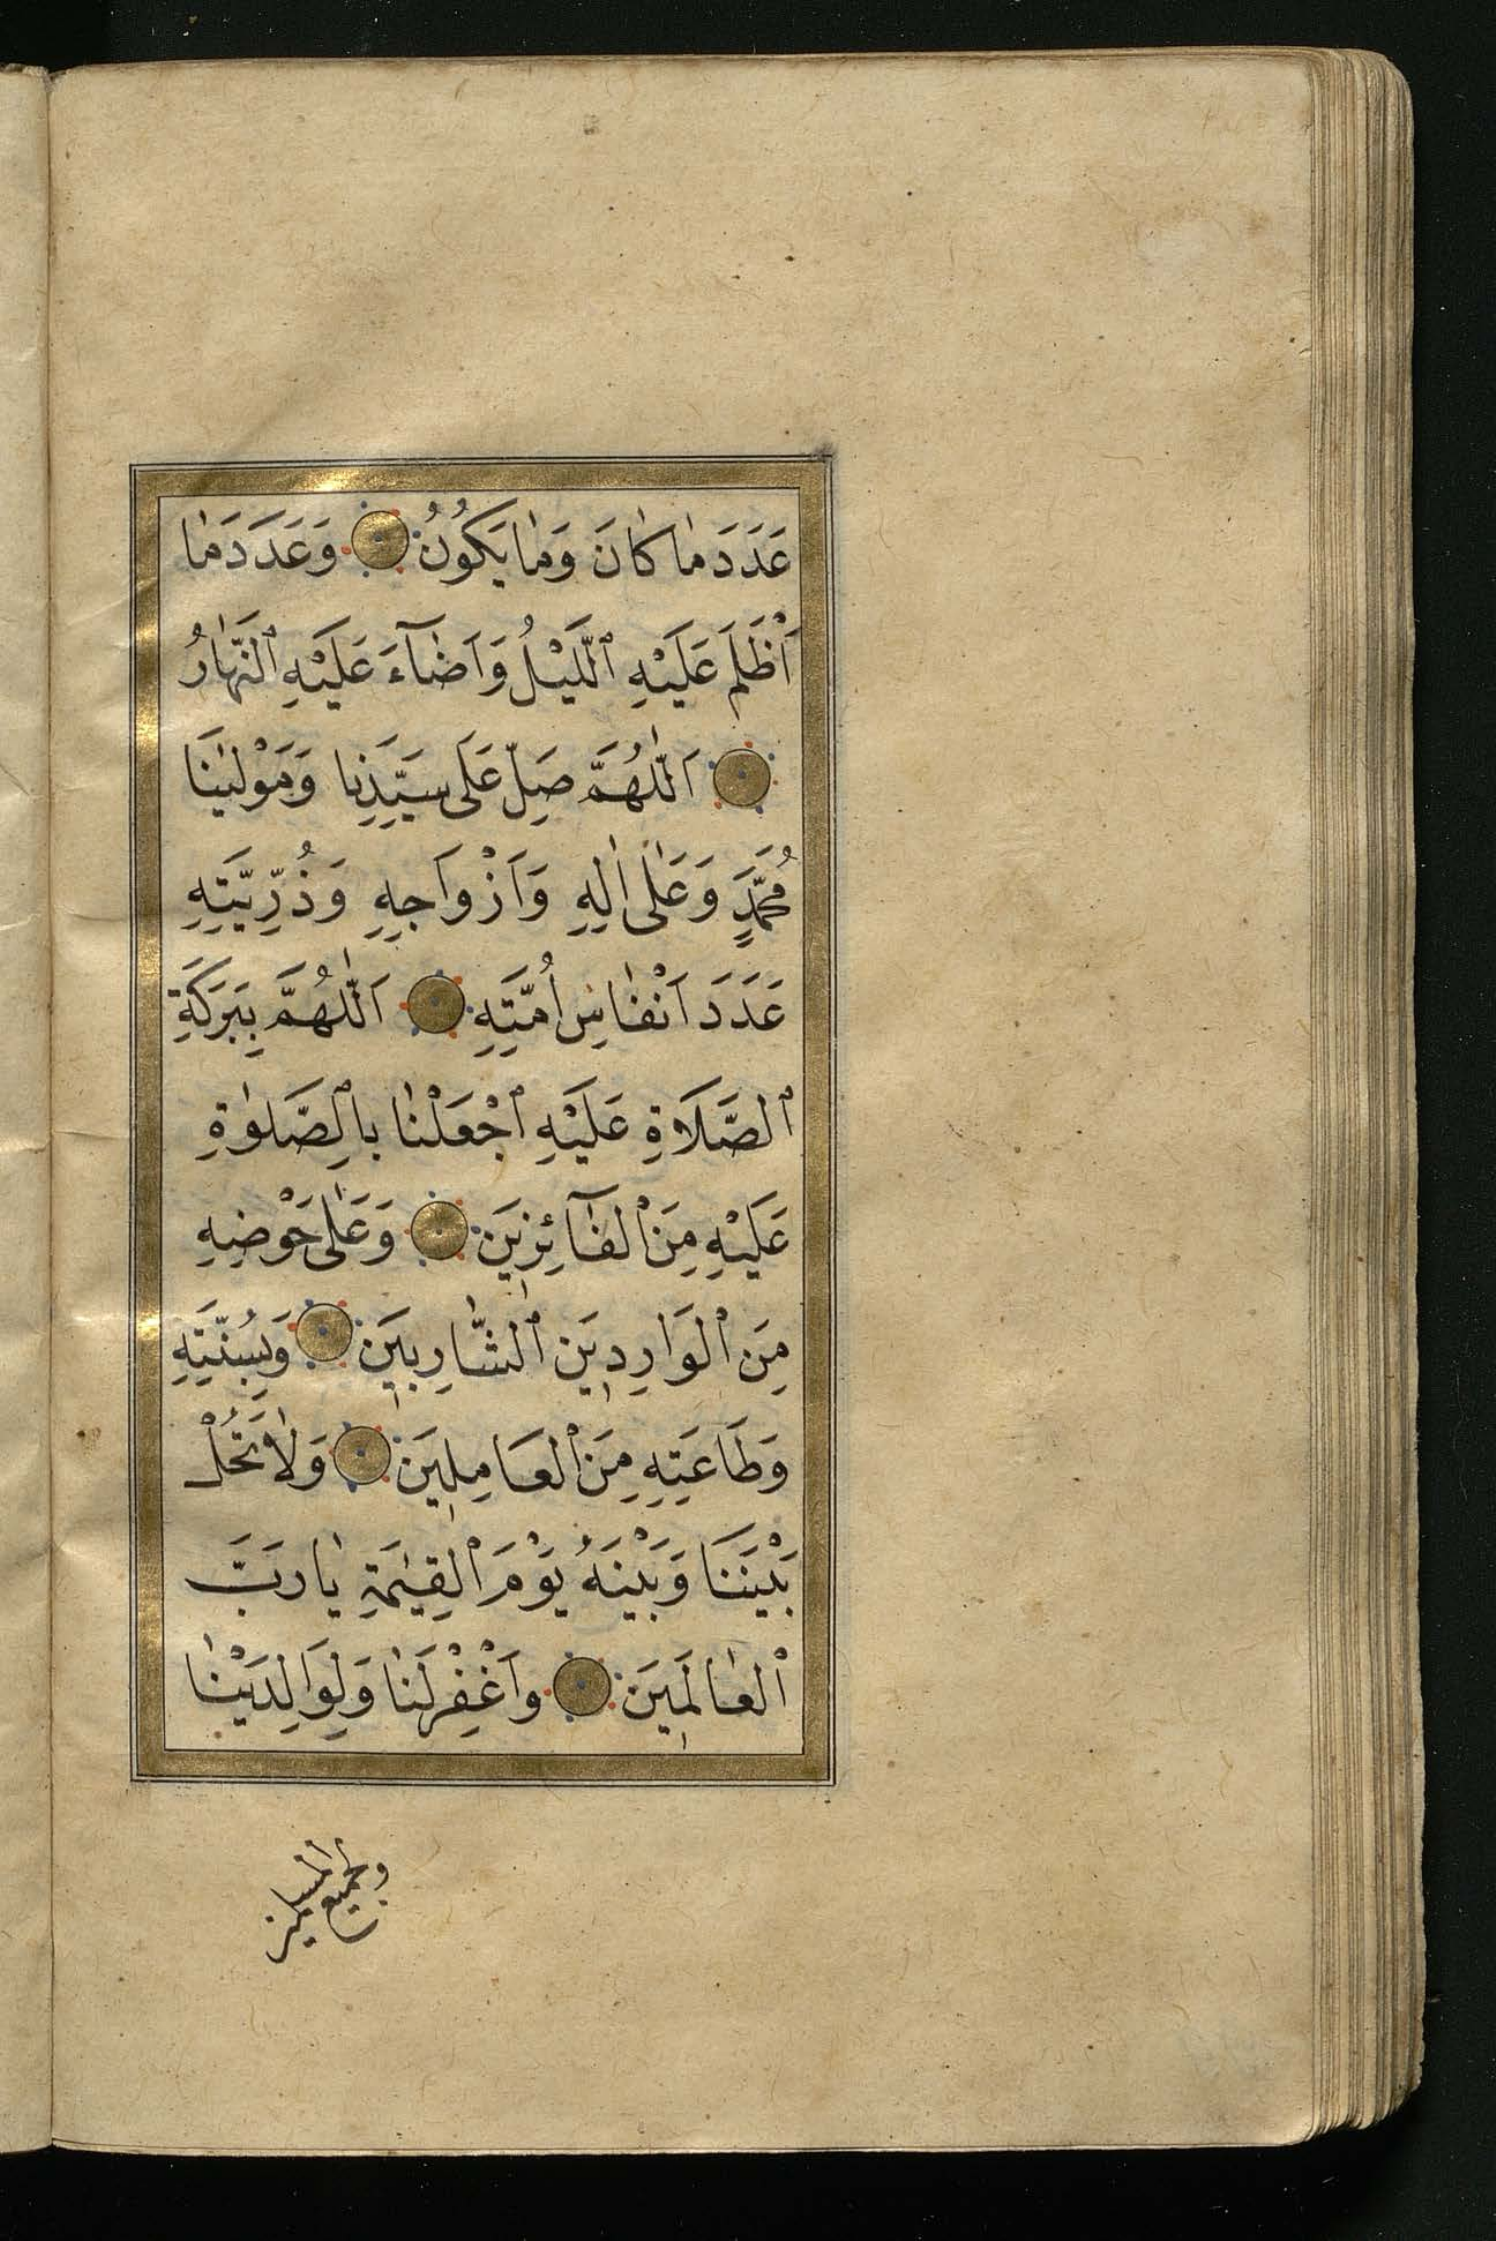 عَدَدَ مٰا كٰانَ وَمٰا يَكُونُ وَعَدَدَ مٰا
اَظْلَمَ عَلَيْهِ ٱلَّيْلُ وَاَضٰٓاءَ عَلَيْهِ ٱلنَّهٰارُ
اَللّٰهُمَّ صَلِّ عَلَى سَيِّدِنٰا وَمَوْلٰينَا
مُحَمَّدٍ وَعَلٰى اٰلِهِ وَاَزْوَاجِهِ وَذُرِّيَّتِهِ
عَدَدَ اَنْفٰاسِ اُمَّتِهِ اَللّٰهُمَّ بِبَرَكَةِ
ٱلصَّلَاةِ عَلَيْهِ ٱجْعَلْنٰا بِالصَّلٰوةِ
عَلَيْهِ مِنَ ٱلْفَٓائِزِينَ وَعَلٰى حَوْضِهِ
مِنَ ٱلْوَارِدِينَ ٱلشَّارِبِينَ وَبِسُنَّتِهِ
وَطَاعَتِهِ مِنَ ٱلْعَامِلِينَ وَلٰا تَحُلْ
بَيْنَنَا وَبَيْنَهُ يَوْمَ ٱلْقِيٰمَةِ يٰا رَبَّ
ٱلْعٰالَمِينَ وَاَغْفِرْ لَنٰا وَلِوَالِدَيْنٰا
ولجميع المسلمين